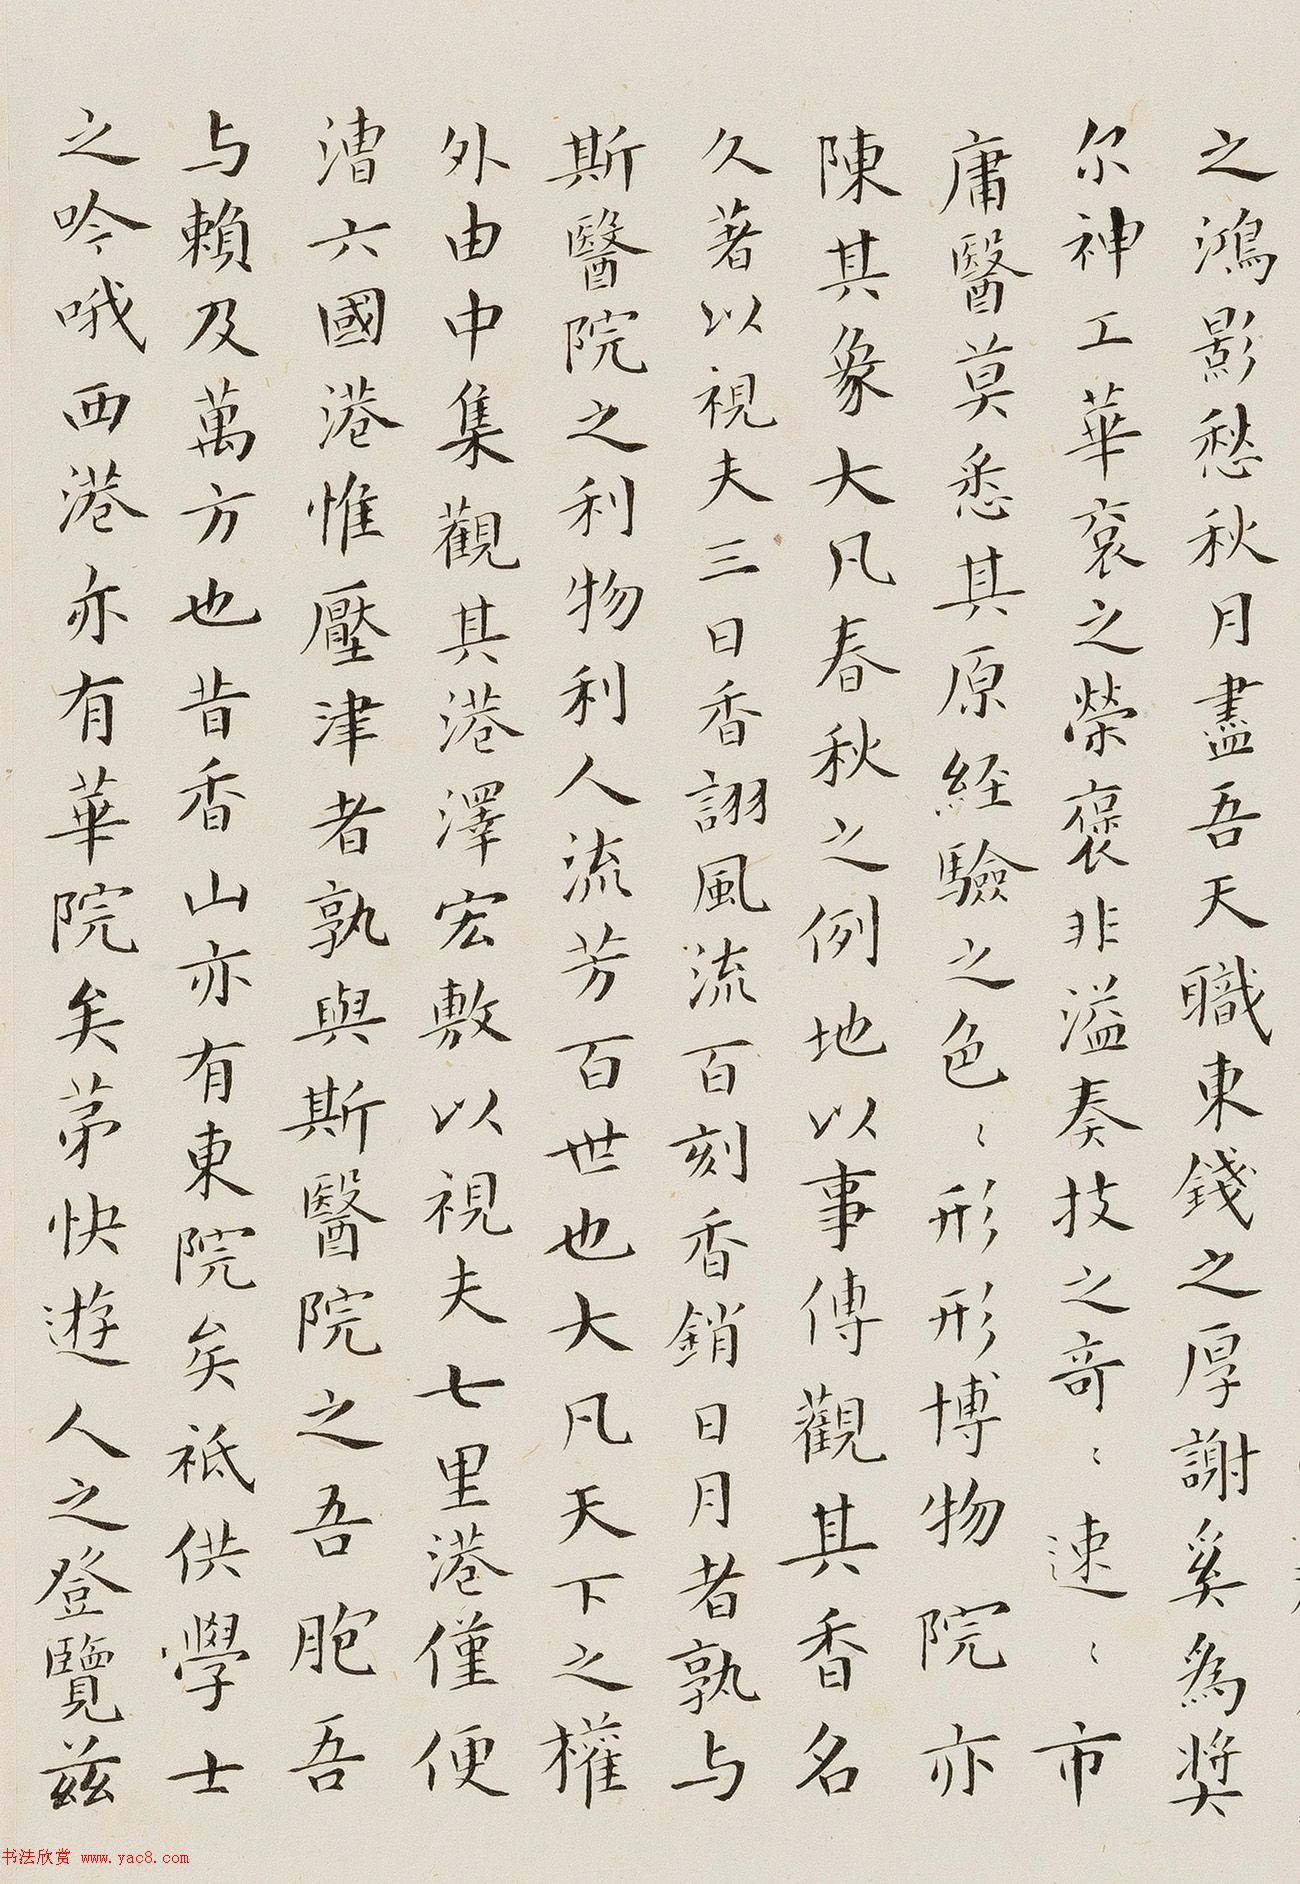 之鴻影愁秋月盡吾天職東錢之厚謝奚為獎
尔神工華衮之榮褒非溢奏技之奇〻速〻市
庸醫莫悉其原經驗之色〻形形博物院亦
陳其象大凡春秋之例地以事傳觀其香名
久著以視夫三日香詡風流百刻香銷日月者孰与
斯醫院之利物利人流芳百世也大凡天下之權
外由中集觀其港澤宏敷以視夫七里港僅便
漕六國港惟壓津者孰與斯醫院之吾胞吾
与賴及萬方也昔香山亦有東院矣祇供學士
之吟哦西港亦有華院矣苐快遊人之登覽茲
书法欣赏 www.yac8.com